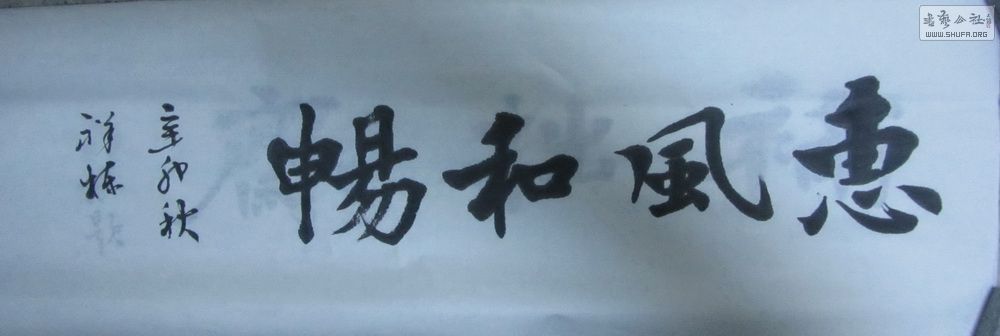 惠風和暢
辛卯秋
祥栋
書藝公社
WWW.SHUFA.ORG